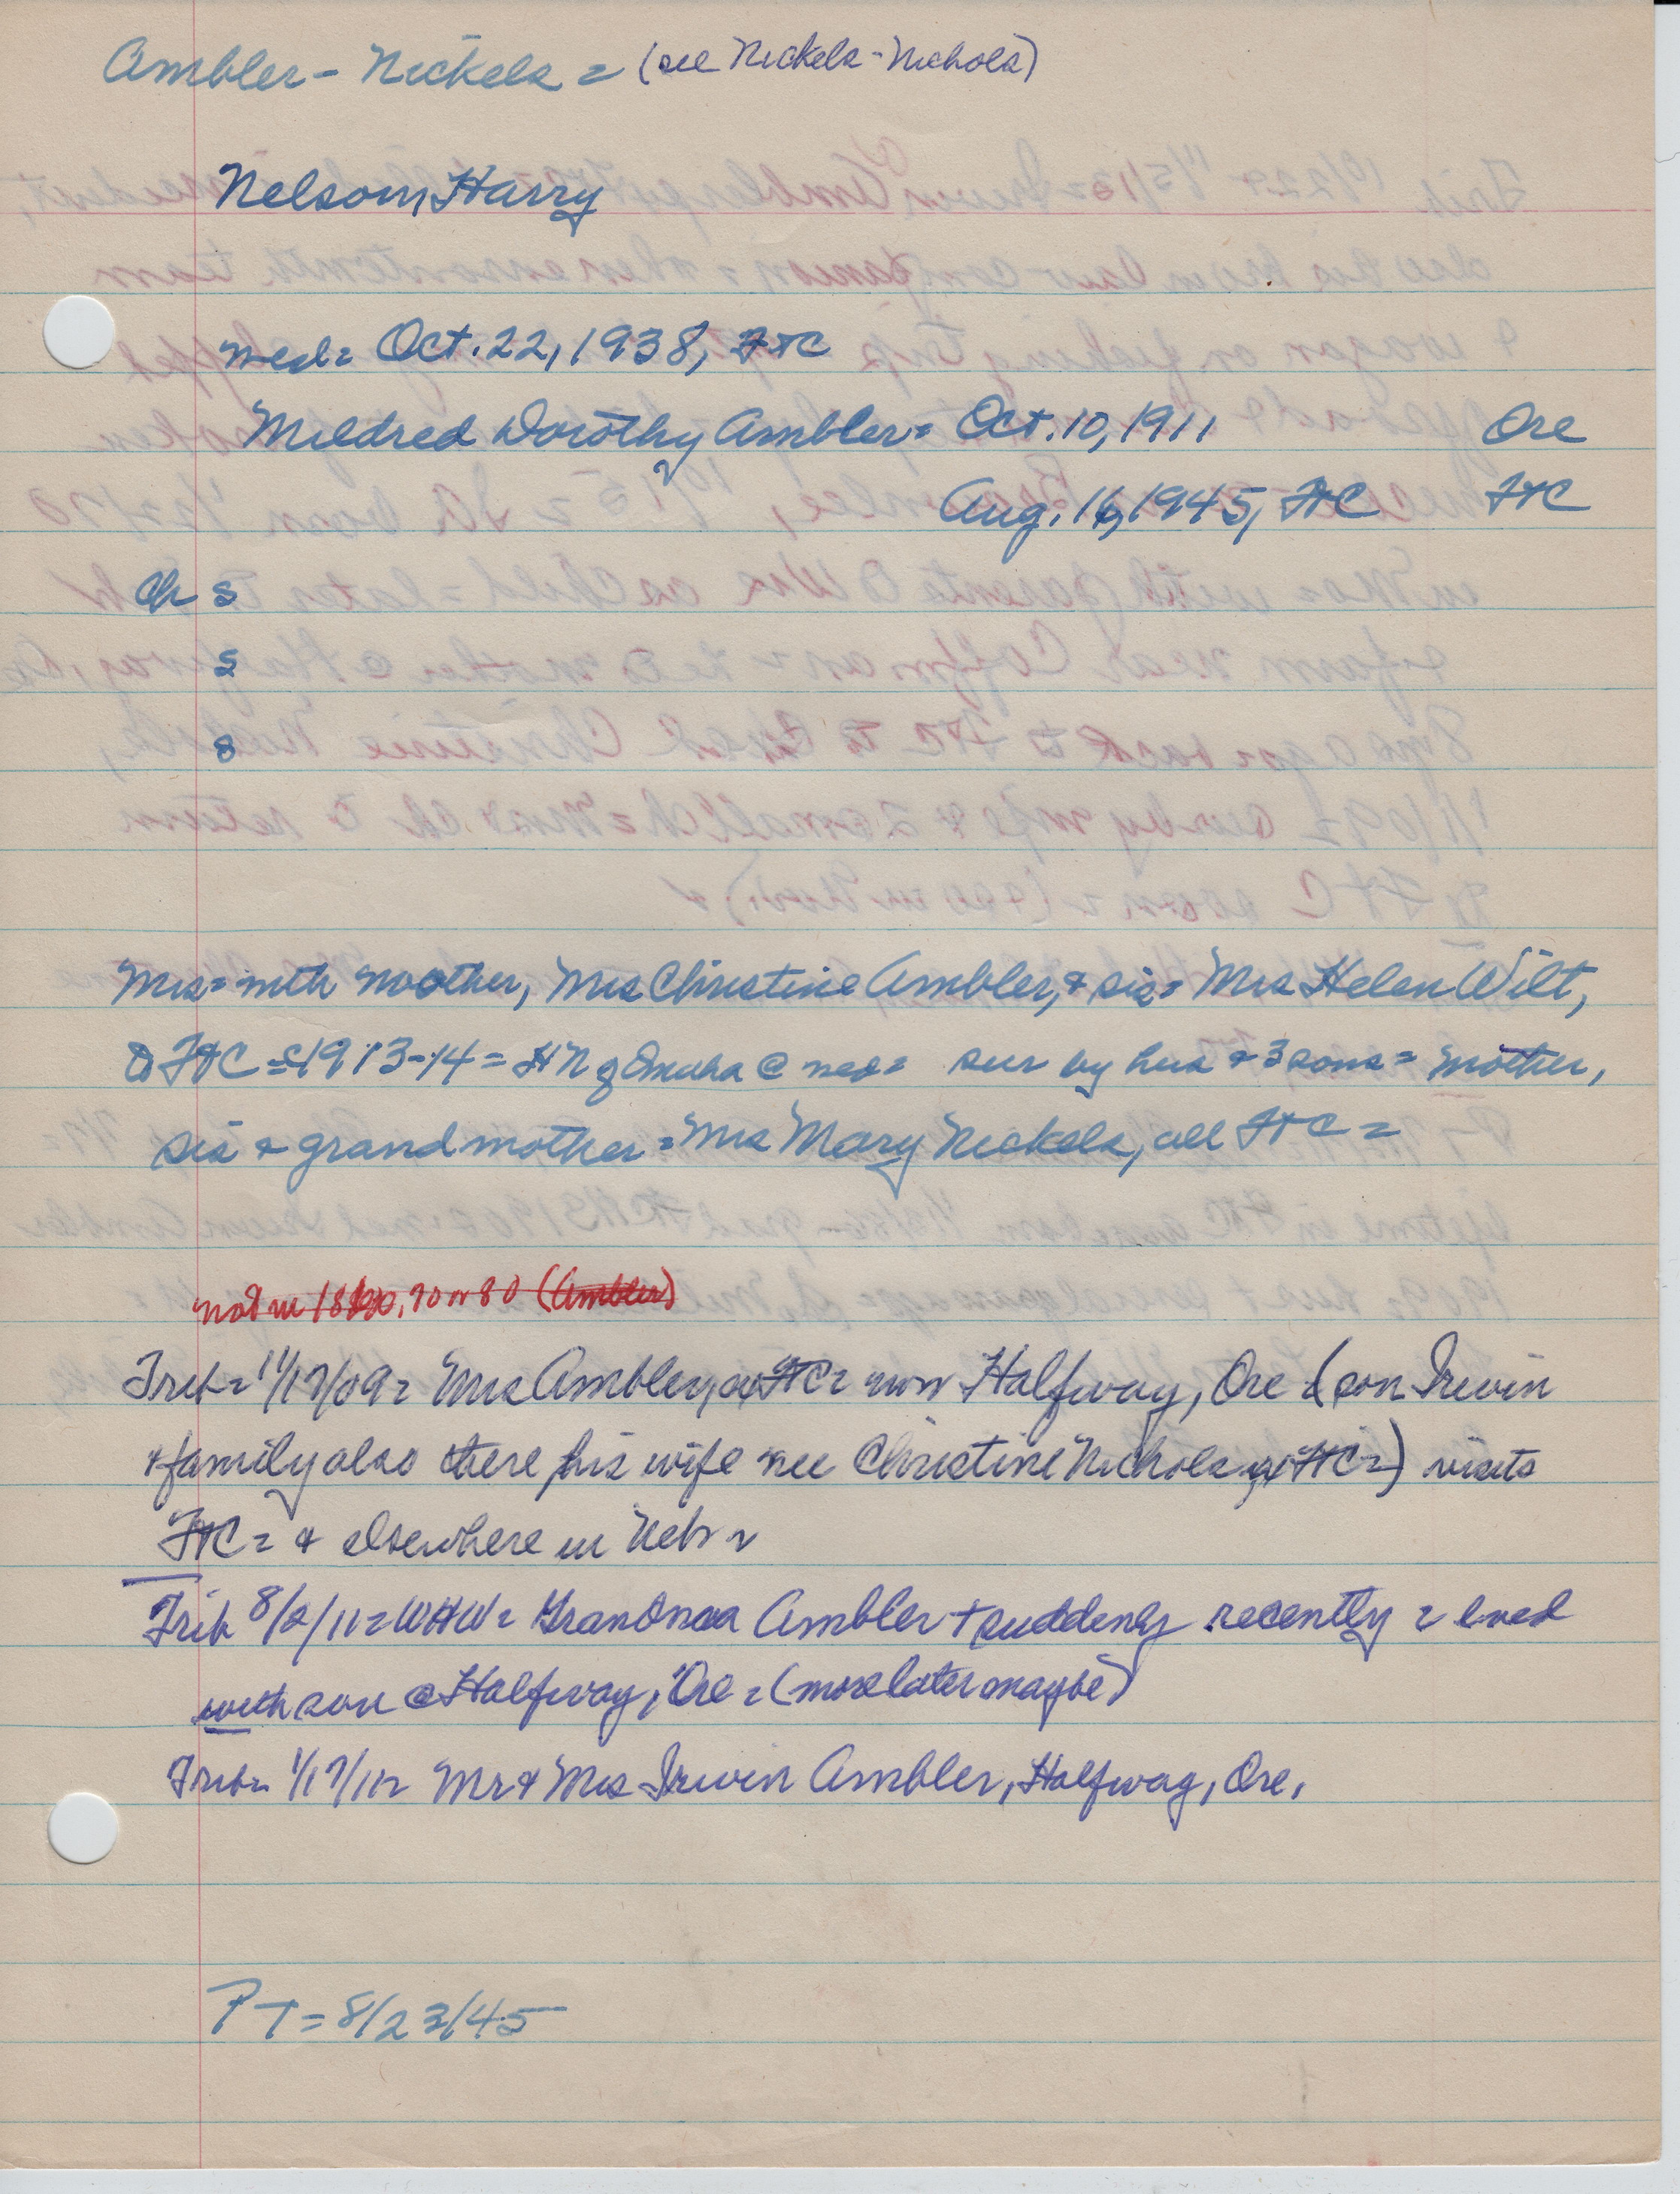 Ambler - Nickels = (see Nickels - Nichols)
Nelson, Harry
med = Oct. 22, 1938, FtC
Mildred Dorothy Ambler = Oct. 10, 1911 Ore
Aug. 16, 1945, FtC FtC
Ch s
s
s
Mrs = with mother, Mrs Christine Ambler, & sis = Mrs Helen Wilt,
to FtC = c1913-14 = HN g Omaha @ med = sur by hus & 3 sons = mother,
sis & grandmother = Mrs Mary Nickels, all FtC =
not in 1860, 70 or 80 (Ambler)
Trib = 11/17/09 = Mrs Ambler, ex FtC = now Halfway, Ore (son Irwin
& family also there his wife nee Christine Nichols ex FtC =) visits
FtC = & elsewhere in Neb =
Trib 8/2/11 = WHW = Grandma Ambler + suddenly recently = lived
with son @ Halfway, Ore = (more later maybe)
Trib = 1/17/11 = Mr & Mrs Irwin Ambler, Halfway, Ore,
PT = 8/23/45